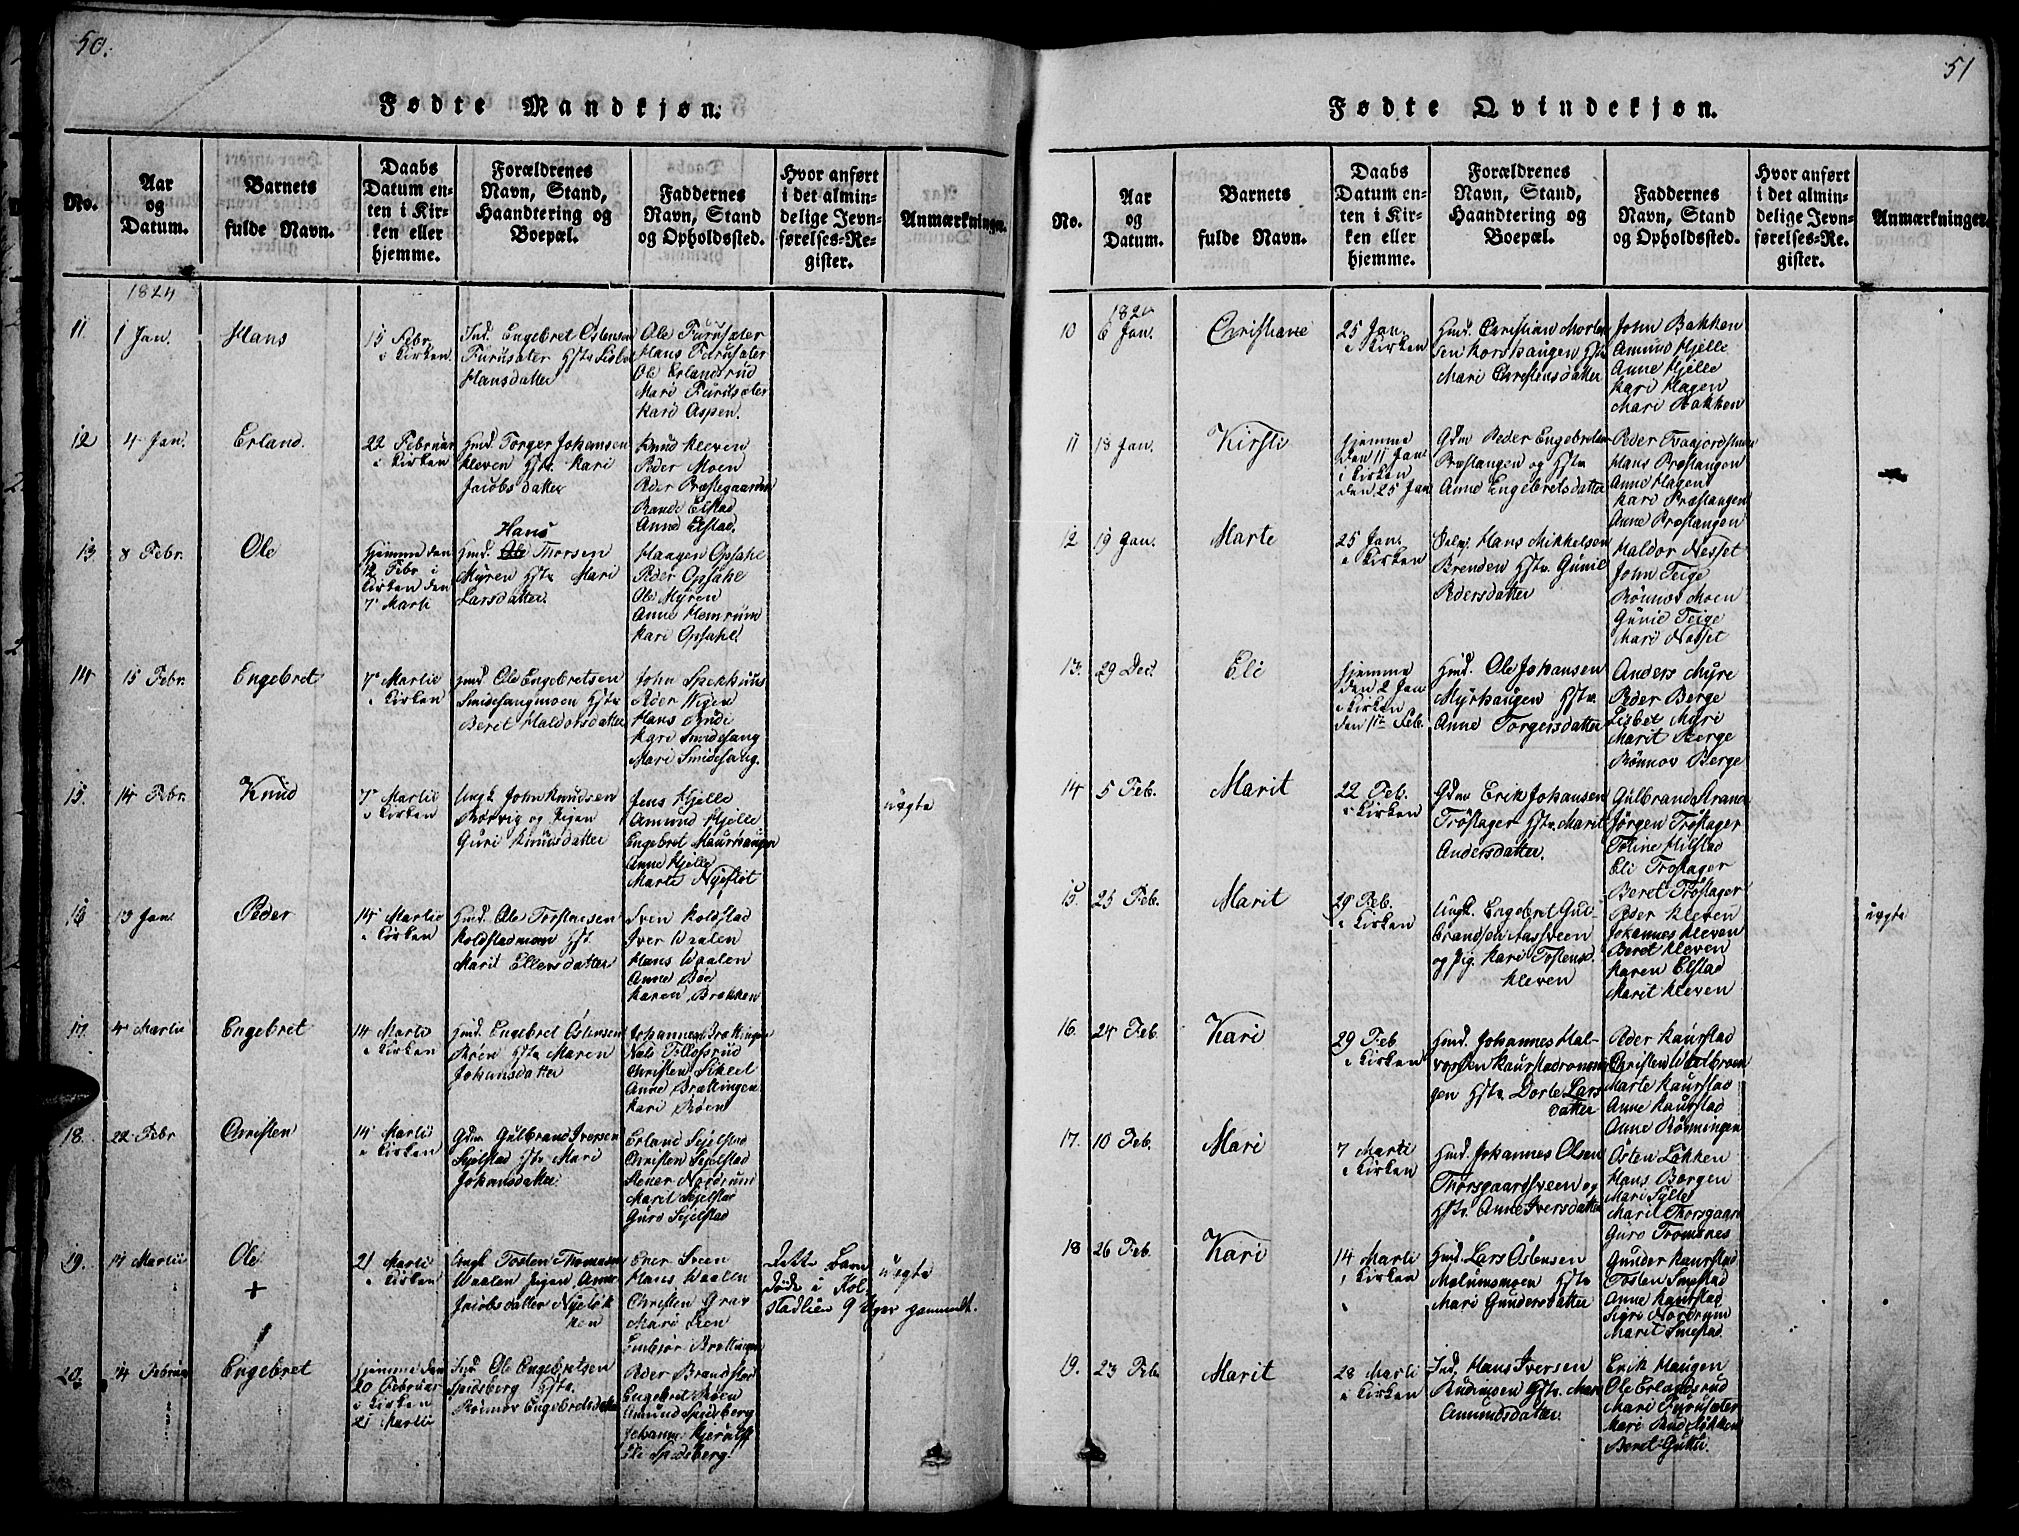 50.
Fødte Mandkjøn.
No.
Aar
og
Datum.
Barnets
fulde Navn.
Daabs
Datum en-
ten i Kir-
ken eller
hjemme.
Forældrenes
Navn, Stand,
Haandtering og
Boepæl.
Faddernes
Navn, Stand
og Opholdssted.
Hvor anført
i det almin-
delige Jevn-
førelses-Re-
gister.
Anmærkninger.
1824
11.
1 Jan.
Hans
15 Febr.
i Kirken.
Ind. Engebret Ostensen
Furusæter Hstr Lisbet
Hansdatter
Ole Furusæter
Hans Furusæter
Ole Erlandsrud
Mari Furusæter
Kari Aspen.
12
4 Jan.
Erland.
22 Februar
i Kirken
Hmd. Torger Johansen
Kleven Hstr. Kari
Jacobsdatter
Knud Kleven
Peder Moen
Peder Præstegaarden
Rande Elstad
Anne Elstad.
13
8 Febr.
Ole
Hjemme den
12 Febr i
Kirken den
7 Marti
Hans
Hmd. Ole Thorsen
Myren Hstr Mari
Larsdatter.
Haagen Opsahl
Peder Opsahl
Ole Myren
Anne Homrum
Kari Opsahl
14
15 Febr.
Engebret
7 Martii
i Kirken
Hmd Ole Engebretsen
Smidesangmoen Hstr
Beret Haldorsdatter
Peder Vigen
Hans Rudi
Kari Smidesang
Mari Smidesang.
15.
14 Febr.
Knud
7 Martii
i Kirken
Ungk John Knudsen
Borvig og Pigen
Guri Knudsdatter
Jens Hjelle
Amund Hjelle
Engebret Maurhaugen
Anne Hjelle
Marte Nyeflot
uægte
16
13 Jan.
Peder
14 Martii
i Kirken
Hmd. Ole Trostensen
Koldstadmoen Hstr.
Marit Ellevsdatter
Sven Koldstad
Iver Waalen
Hans Waalen
Anne Boe
Karen Brækken
17.
4 Martii
Engebret
14 Marti
i Kirken
Hmd. Engebret Ostensen
Roen Hstr Maren
Johansdatter
Johannes Brættingen
Nels Tollofsrud
Christen Scheel
Anne Brættingen
Kari Roen
18.
22 Febr
Christen
14 Martii
i Kirken
Gdm Gulbrand Iversen
Sejelstad Hstr Mari
Johansdatter
Erland Sejelstad
Christen Sejelstad
Stener Nordrum
Marit Sejelstad
Guro Sejelstad
19.
14 Martii
Ole
+
21 Martii
i Kirken
Ungk Tosten Thomasen
Waalen Pigen Anne
Jacobsdatter Nyeløk
ken
Ever Sveen
Hans Waalen
Christen Grav
Mari Lien
Embjør Brættingen
Dette Barn
døde i Kol-
stadlien 9 Uger gammelt.
uægte
20.
14 Februar
Engebret
Hjemme den
20 Februar
i Kirken
21 Martii
Ind. Ole Engebretsen
Spidsberg Hstr.
Rønnov Engebretsdatter
Peder Brandstad
Engebret Roen
Amund Spidsberg
Johannes Hjerulst
Eli Spidsberg.
51
Fødte Qvindekjøn.
No.
Aar
og
Datum.
Barnets
fulde Navn.
Daabs
Datum en-
ten i Kir-
ken eller
hjemme.
Forældrenes
Navn, Stand,
Haandtering og
Boepæl.
Faddernes
Navn, Stand
og Opholdssted.
Hvor anført
i det almin-
delige Jevn-
førelses-Re-
gister.
Anmærkninger.
1824
10
6 Jan.
Christiane
25 Jan.
i Kirken
Hmd. Christian Morten
sen Korshaugen Hstr
Mari Christensdatter
John Bakken
Amund Hjelle
Anne Hjelle
Kari Hagen
Mari Bakken
11
13 Jan.
Kirsti
Hjemme
den 11 Jan
i Kirken
den 25 Jan
Gdm Peder Engebretsen
Præstangen og Hstr
Anne Engebretsdatter
Hans Præstangen
Anne Hagen
Kari Præstangen
Anne Præstangen
12
19 Jan.
Marte
25 Jan.
i Kirken
Hans Mikkelsen
Brenden Hstr. Gunil
Pedersdatter
Haldor Nesset
John Teige
Rønnov Moen
Gunil Teige
Mari Nesset
13.
29 Dec.
Eli
Hjemme
den 2 Jan
i Kirken
den 1 Feb.
Hmd. Ole Johansen
Myrhaugen Hstr.
Anne Torgersdatter
Anders Myre
Peder Berge
Lisbet Myre
Marit Berge
Rønnov Berge
14
5 Feb.
Marit
22 Feb.
i Kirken
Gdm Erik Johansen
Trøstager Hstr. Marit
Andersdatter.
Gulbrand Strand
Jørgen Trøstager
Toline Hilstad
Eli Trøstager
Beret Trøstager
15.
25 Feb.
Marit
29 Feb.
i Kirken
Ungk. Engebret Gul-
brandsen Aasveen
og Pig. Kari Tostensd.
Kleven
Peder Kleven
Johannes Kleven
Beret Kleven
Karen Elstad
Marit Kleven
uægte
16.
24 Feb.
Kari
29 Feb
i Kirken
Hmd. Johannes Hal-
vorsen Kaurstadrønnin
gen Hstr. Dorte Lars
datter
Peder Kaurstad
Christen Wedebroen
Marte Kaurstad
Anne Kaurstad
Anne Rønningen
17.
10 Feb.
Mari
7 Marti
i Kirken
Hmd. Johannes Olsen
Thorsgaardsveen og
Hstr. Anne Iversdatter
Osten Løkken
Hans Borgen
Mari Sylle
Marit Thorsgaard
Guro Tromsnes
18
26 Feb.
Kari
14 Marti
i Kirken
Hmd. Lars Ostensen
Melumsmoen Hstr
Mari Gundersdatter
Gunder Kaurstad
Tosten Smestad
Anne Kaurstad
Sigri Nordrum
Marit Smestad
19.
23 Feb.
Marit
28 Marti
i Kirken
Ind. Hans Iversen
Rudimoen Hstr. Mari
Amundsdatter.
Erik Haugen
Ole Erlandsrud
Mari Furusæter
Mari Rudeløkken
Beret Gutu.